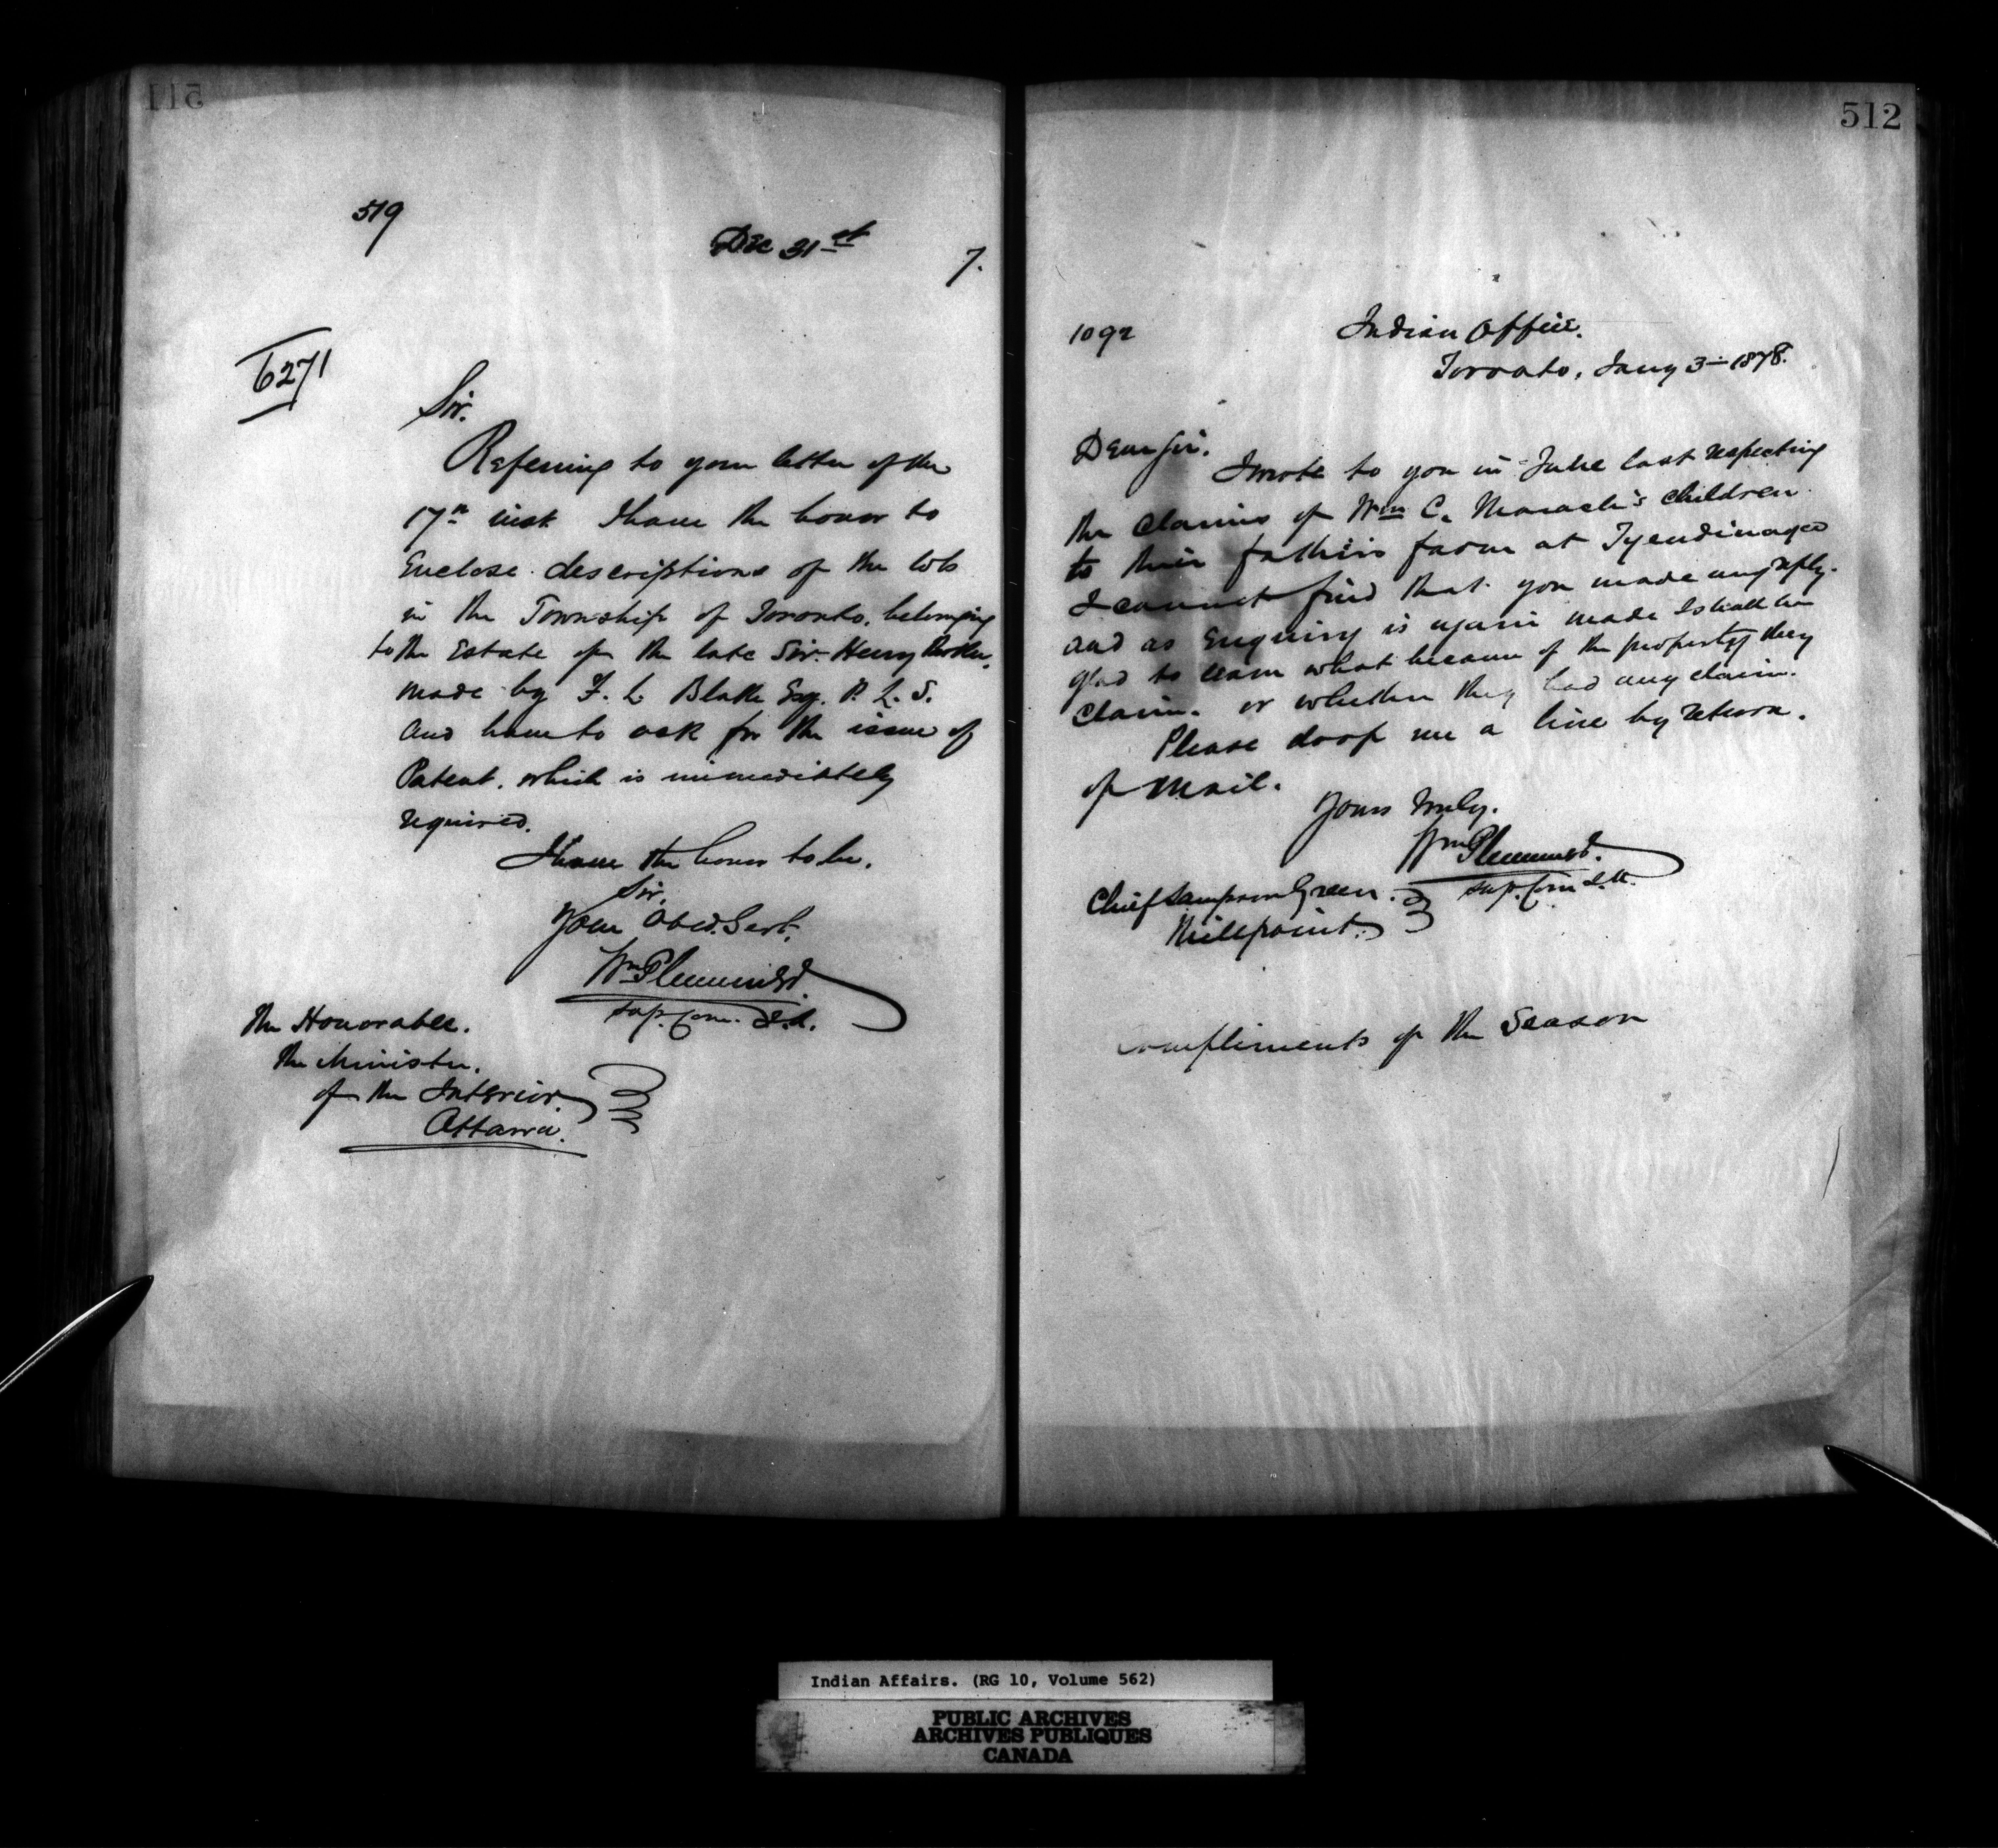 511
519
Dec 31st
7.
6271
Sir.
Referring to your letter of the
17th inst I have the honor to
Enclose descriptions of the lots
in the Township of Toronto, belonging
to the Estate of the late Sir Henry
made by F. L. Blake Esq. P. L. S.
and have to ask for the issue of
Patent, which is immediately
required.
I have the honor to be.
Sir,
Your Obed. Servt.
Wm Plummer
Sup. Com. I.A.
The Honorable.
The Minister.
of the Interior
Ottawa.
512
1092
Indian Office.
Toronto, Jany 3 - 1878.
Dear Sir.
I wrote to you in last respecting
the claims of Wm C. Maracle's children
to their father's farm at Tyendinaga
I cannot find that you made any reply.
and as Enquiry is again made I shall be
glad to learn what became of the property they
claim. or whether they had any claim.
Please drop me a line by return.
of Mail.
Yours truly.
Wm Plummer
Sup. Com I.A.
Chief Sampson Green.
Millpoint.
Compliments of the Season
Indian Affairs. (RG 10, Volume 562)
PUBLIC ARCHIVES
ARCHIVES PUBLIQUES
CANADA